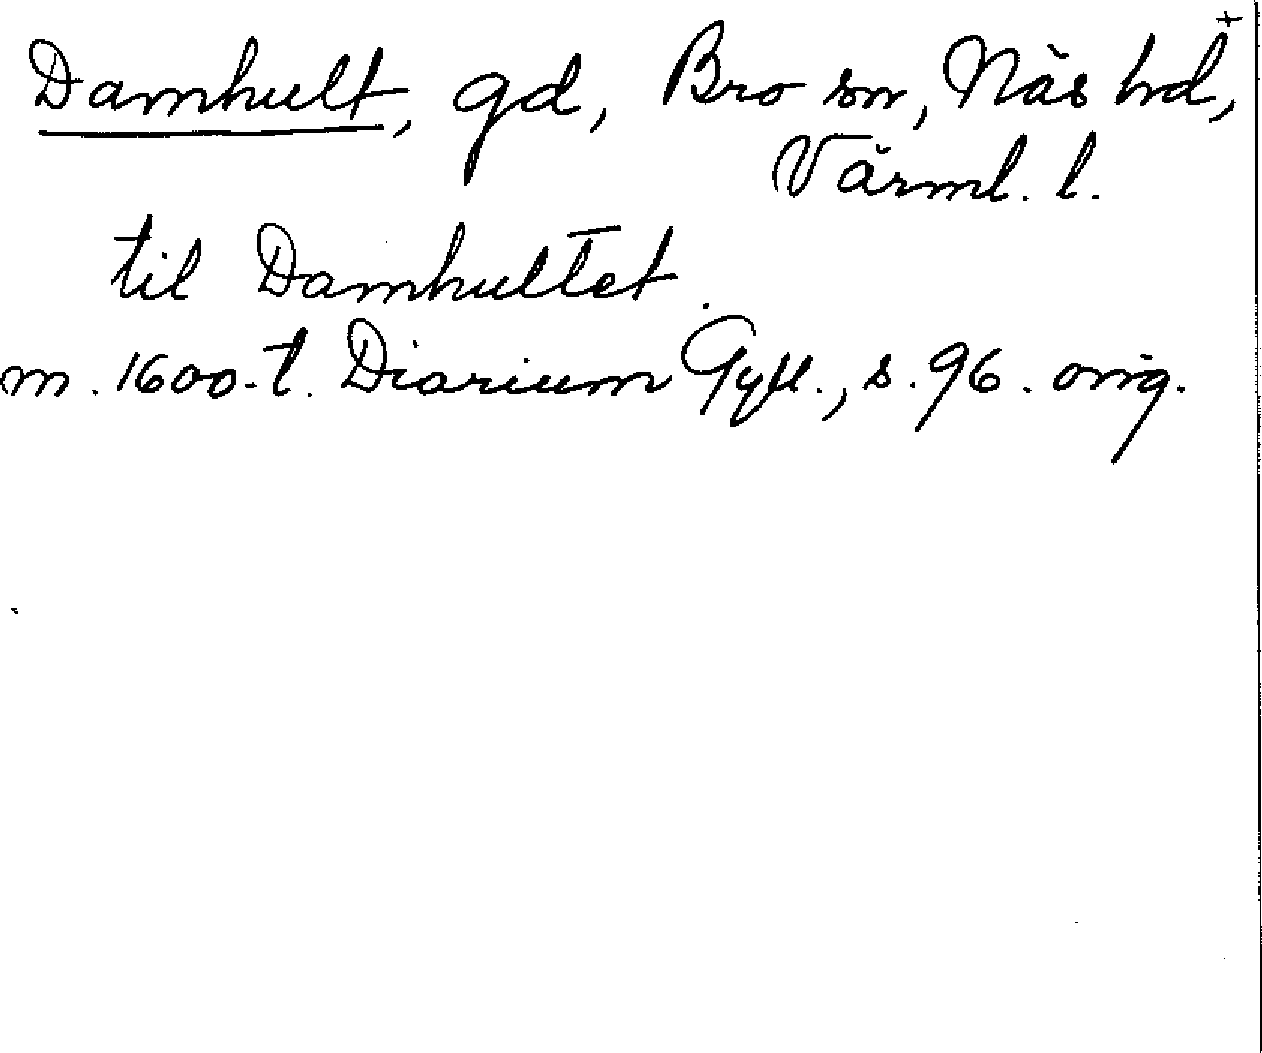 Damhult, gd, Bro sn, Näs hd,+
Värml. l.
til Damhultet.
m. 1600-t. Diarium Gyll., s. 96. orig.